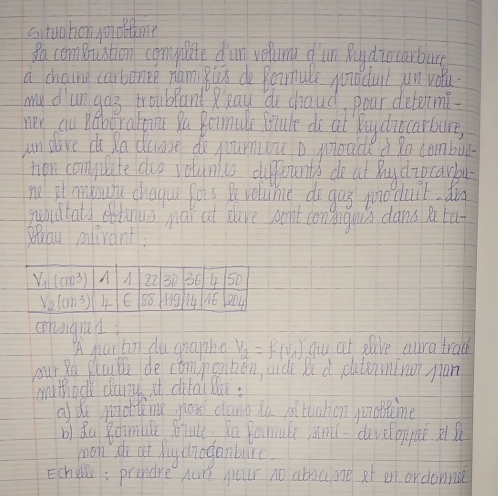 Situation problème
La combustion complète d'un volume d'un hydrocarbure
à chaine carbonée ramifiés de formule produit un volu-
me d'un gaz troublant l'eau de chaud. pour determi-
ner au laboratoire la formule brute de cet hydrocarbure,
un élève de la classe de première D procède à la combus-
tion complète des volumes différents de cet hydrocarbu-
re et mesure chaque fois le volume de gaz produit. Les
resultats obtenus par cet élève sont consignés dans le ta-
bleau suivant :
V₁ (cm³) 1 1 22 30 36 4 50
V₂ (cm³) 4 6 88 119 14 16 204
consignes :
A partir du graphe V₂ = f(V₁) que cet élève aura tracé
sur la feuille de composition, aide le à déterminer par
methode claire et détaillée :
a) le problème posé dans la situation problème
b) La formule brute - la formule semi - developpée et le
nom de cet hydroganbure
Echelle : prendre pour 10 abscisse et en ordonnée